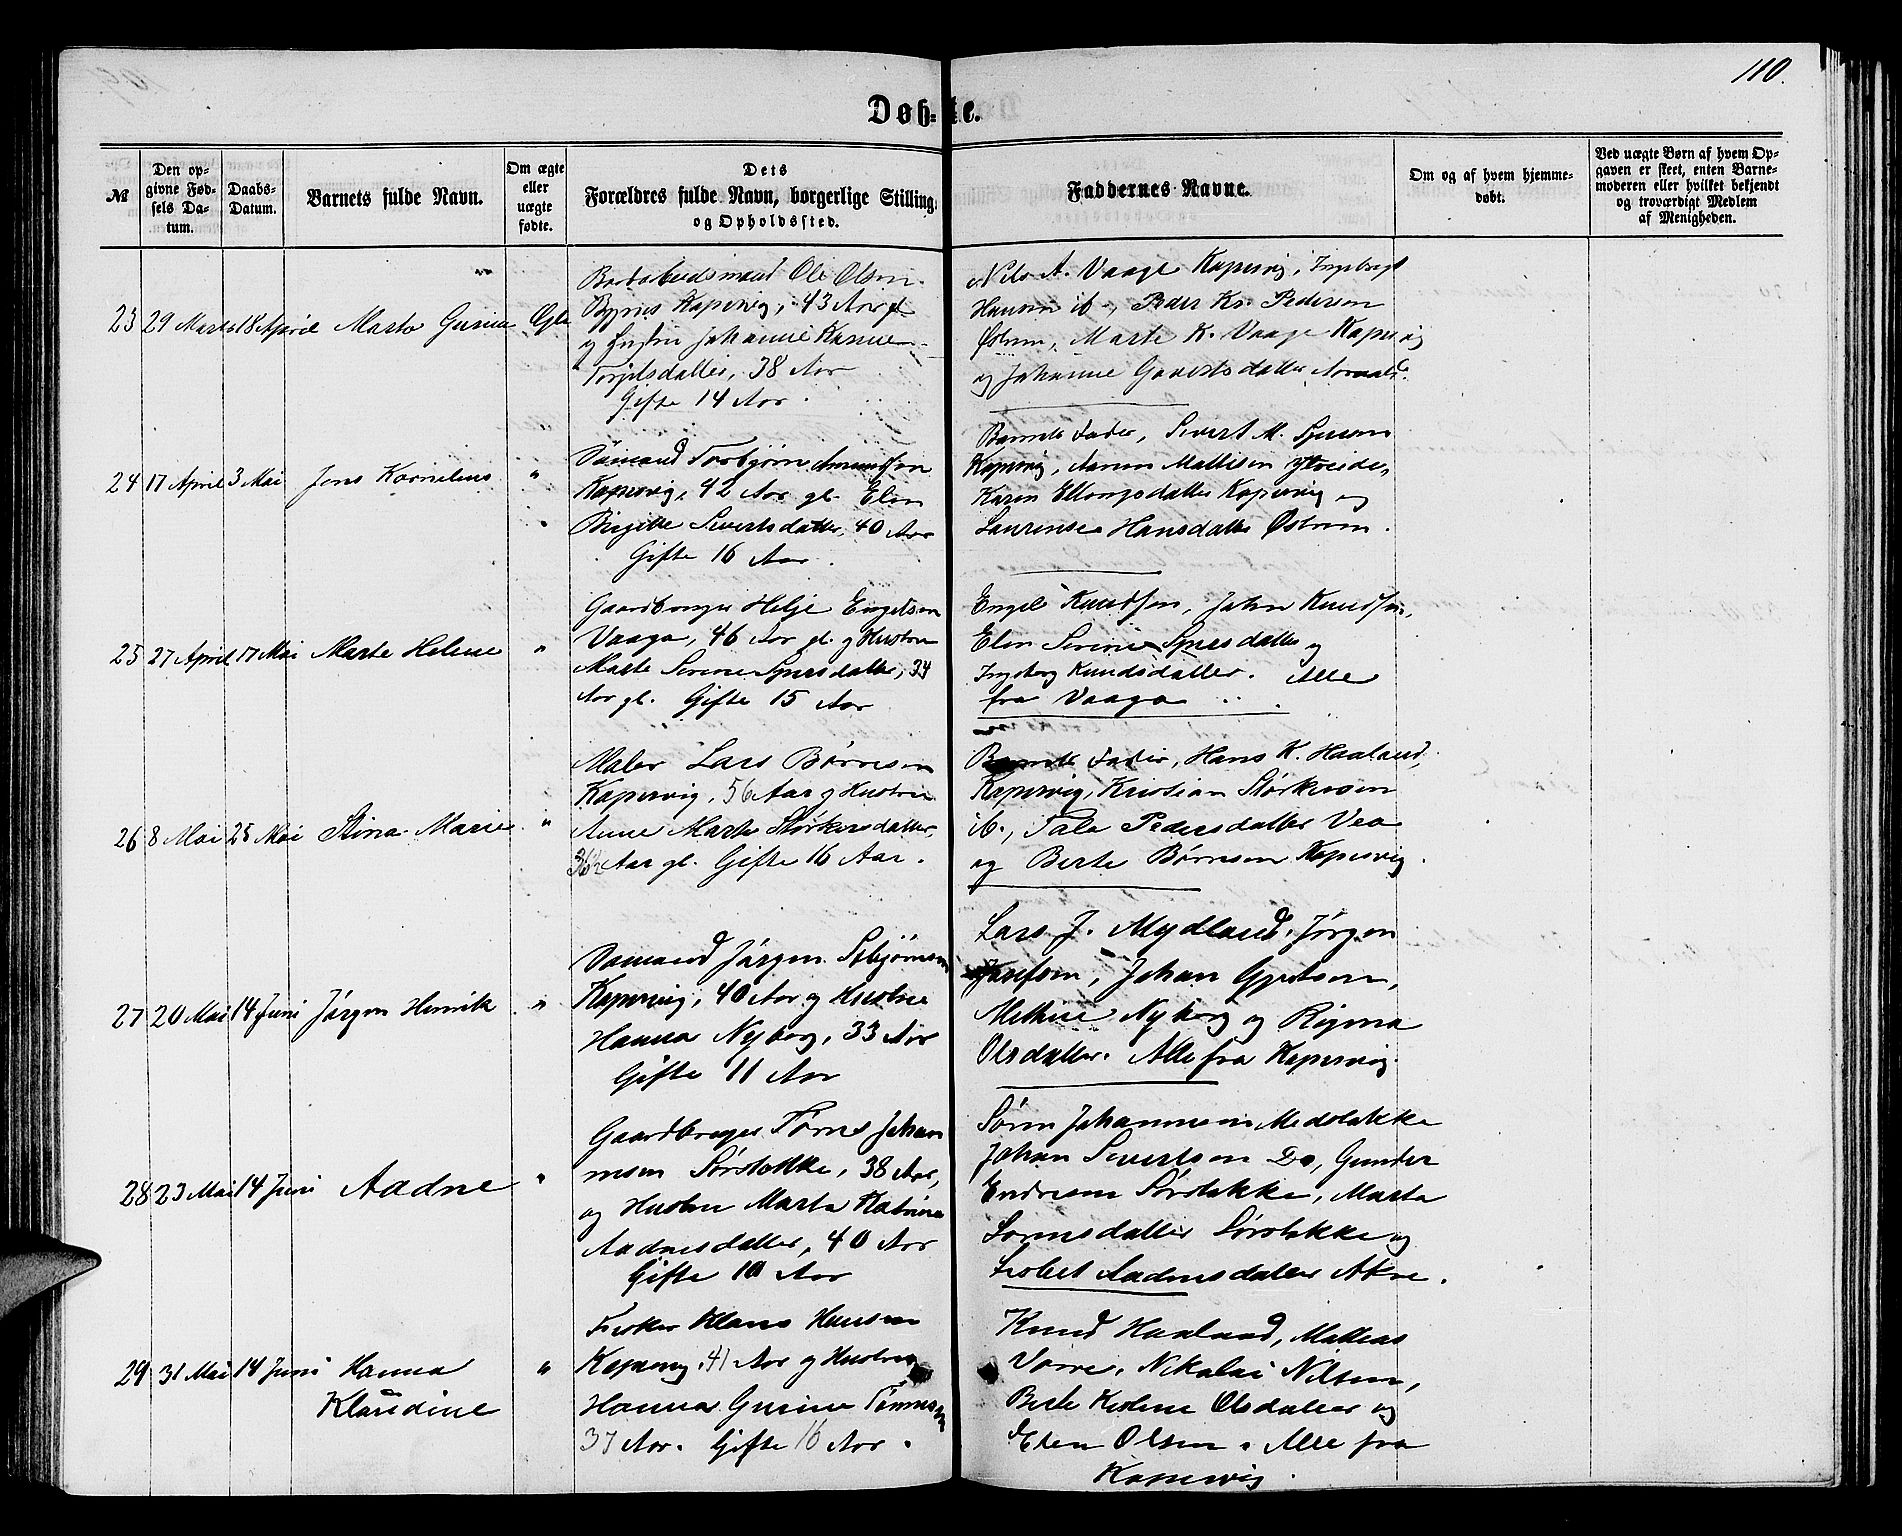 110.
Døbte.
№
Den op-
givne Fød-
sels Da-
tum.
Daabs-
Datum.
Barnets fulde Navn.
Om ægte
eller
uægte
fødte.
Dets
Forældres fulde Navn, borgerlige Stilling,
og Opholdssted.
Faddernes Navne.
Om og af hvem hjemme-
døbt.
Ved uægte Børn af hvem Op-
gaven er skeet, enten Barne-
moderen eller hvilket bekjendt
og troværdigt Medlem
af Menigheden.
23 29 Marts 18 April Marta Gurine Ægte
Ole Olsen
Kopervig, 43 Aar gl.
og Johanne Karine
38 Aar
Gifte 14 Aar.
Nils A. Vaage Kopervig, Ingebregt
Hansen ib., Peder Kr. Pedersen
Østrem, Marte K. Vaage Kopervig
og Johanne Govertsdatter
24 17 April 3 Mai Jens Kornelius "
Sømand Torbjørn Amundsen
Kopervig, 42 Aar gl. Elen
Birgitte Sivertsdatter, 40 Aar
Gifte 16 Aar.
Barnets Fader, Sivert M.
Kopervig, Mattisen
Karen Kopervig og
Laurense Hansdatter Østrem.
25 27 April 17 Mai Marte Helene "
Gaardbruger Helje Engelsen
Vaaga, 46 Aar gl. og Hustru
Marte Serine Sjursdatter, 34
Aar gl. Gifte 15 Aar
Engel Knudsen, John Knudsen,
Elen Serine Sjursdatter og
Ingeborg Knudsdatter. Alle
fra Vaaga
26 8 Mai 25 Mai Stina Marie "
Maler Lars Børresen
Kopervig, 56 Aar og Hustru
Anne Marte Størkersdatter,
36½ Aar gl. Gifte 16 Aar.
Barnets Fader, Hans K. Haaland,
Kopervig, Kristian Størkersen
ib., Tale Pedersdatter Vea
og Berte Børresen Kopervig.
27 20 Mai 14 Juni Jørgen Henrik "
Sømand Jørgen
Kopervig, 40 Aar og Hustru
Hanna Nyborg, 33 Aar
Gifte 11 Aar
Lars J. Mydland, Jørgen
Josefsen, Johan
Methine Nyborg og
Olsdatter. Alle fra Kopervig.
28 23 Mai 14 Juni Aadne "
Gaardbruger Tørres Johan-
nesen Sørstokke, 38 Aar,
og Hustru Marta Katrine
Aadnesdatter, 40 Aar
Gifte 10 Aar
Søren Johannesen Medstokke
Johan Sivertsen Do, Gunder
Endresen Sørstokke, Marta
Sørstokke og
Lisbet Aadnesdatter Akre.
29 31 Mai 14 Juni Hanna
Klaudine "
Fisker Klaus Hansen
Kopervig, 41 Aar og Hustru
Hanna Gurine Tønnesen
37 Aar. Gifte 16 Aar.
Knud Haaland, Mathias
Vorre, Nikolai Nilsen,
Berte Olsdatter og
Elen Olsen. Alle fra
Kopervig.